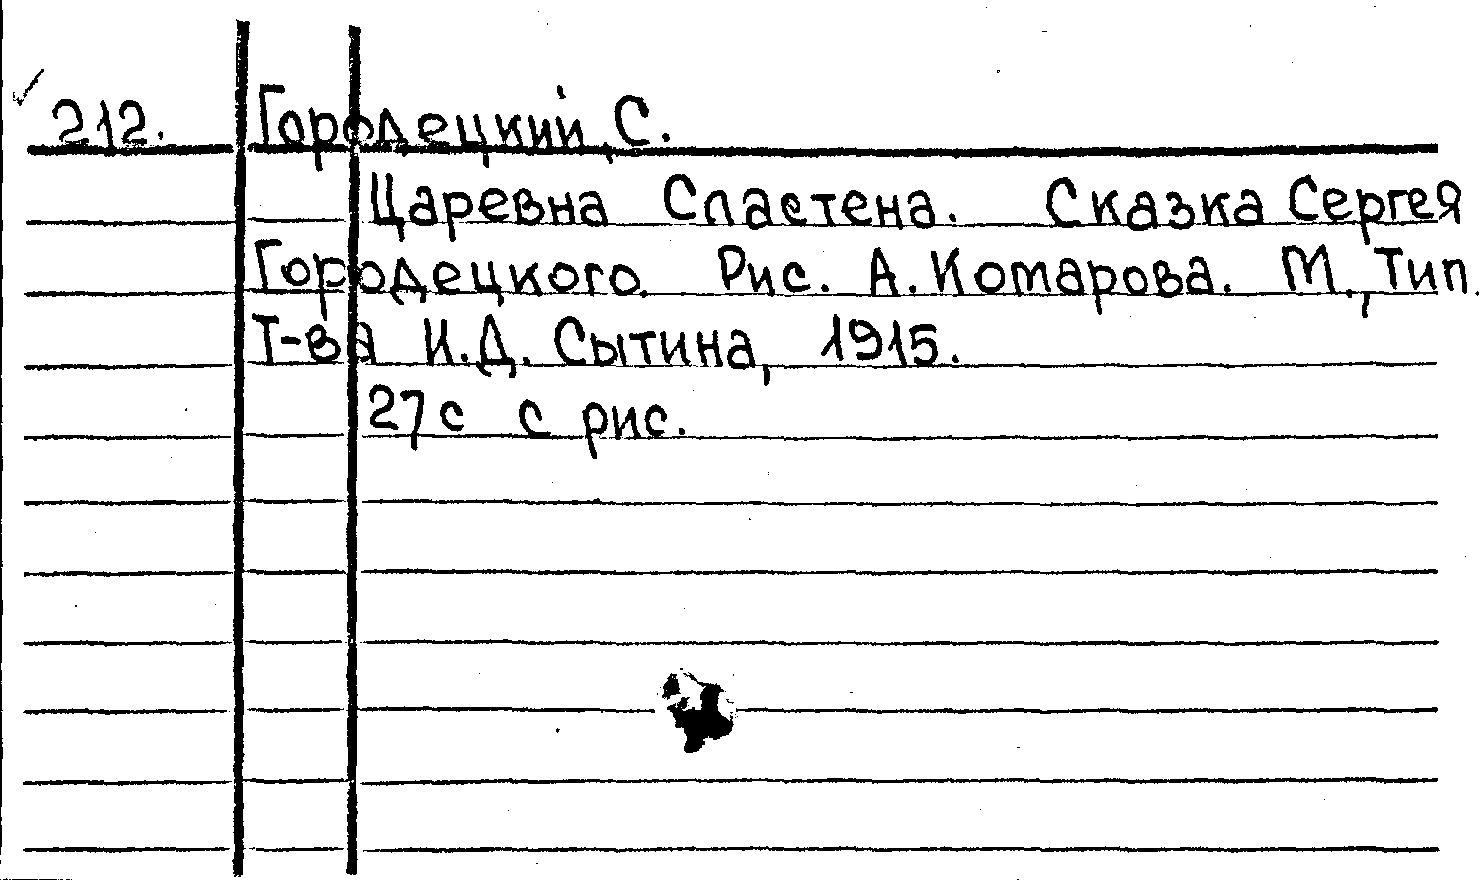 212. Городецкий, С.
Царевна Сластена. Сказка Сергея
Городецкого. Рис. А. Комарова. М., Тип.
Т-ва И.Д. Сытина, 1915.
27с с рис.